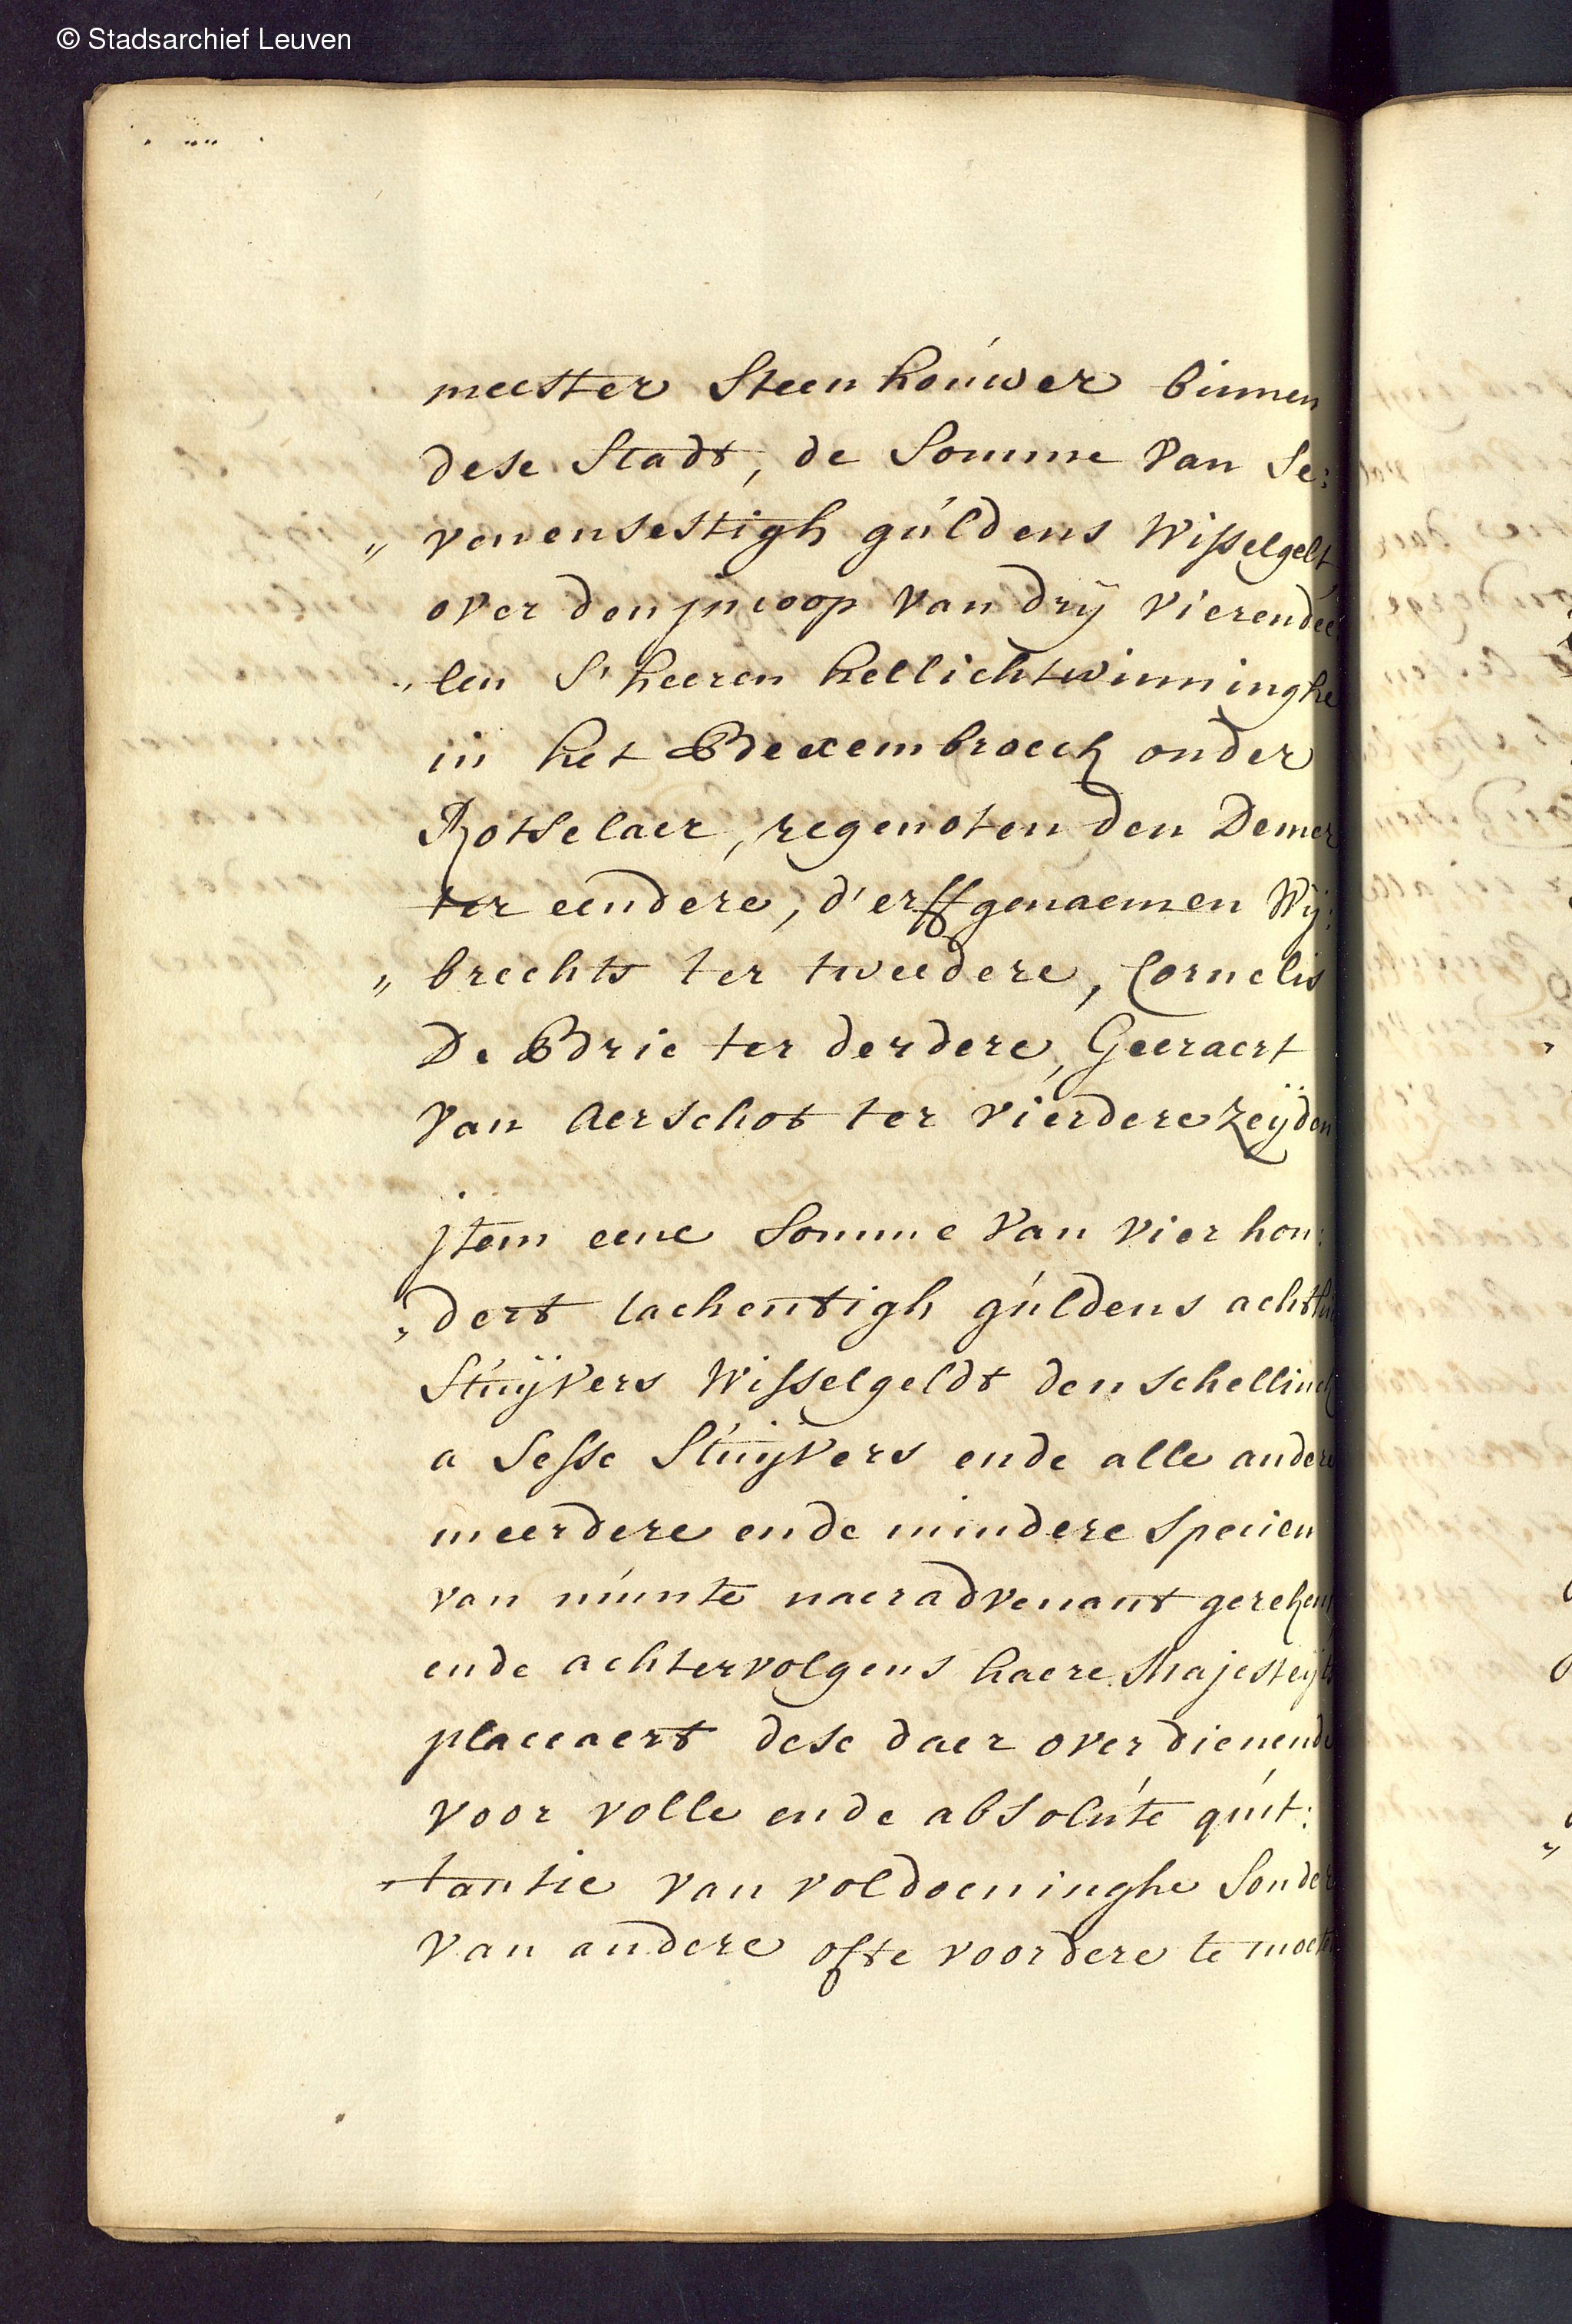 © Stadsarchief Leuven
meester Steenhoúwer binnen
dese Stadt, de Somme Van Se:
„ venensestigh gúldens Wisselgelt
over den jncoop Van drij Vierendee
„ len S'heeren hellichtwinninghe
in het Beexembroeck onder
Rotselaer, regenoten den Demer
ter eendere, d'erffgenaemen Wij:
„ brechts ter tweedere, Cornelis
De Brie ter derdere, Geeraert
Van Aerschot ter vierdere Zeijden
jtem eene Somme Van Vier hon:
„ dert tachentigh gúldens achthien
Stúijvers Wisselgeldt den schellinck
a Sesse Stúijvers ende alle andere
meerdere ende mindere Specien
van múnte naer advenant gerekent
ende achtervolgens haere Majesteijts
placcaert dese daer over dienende
voor volle ende absolúte qúit:
„ tantie van voldoeninghe Sonder
Van andere ofte voordere te moeten